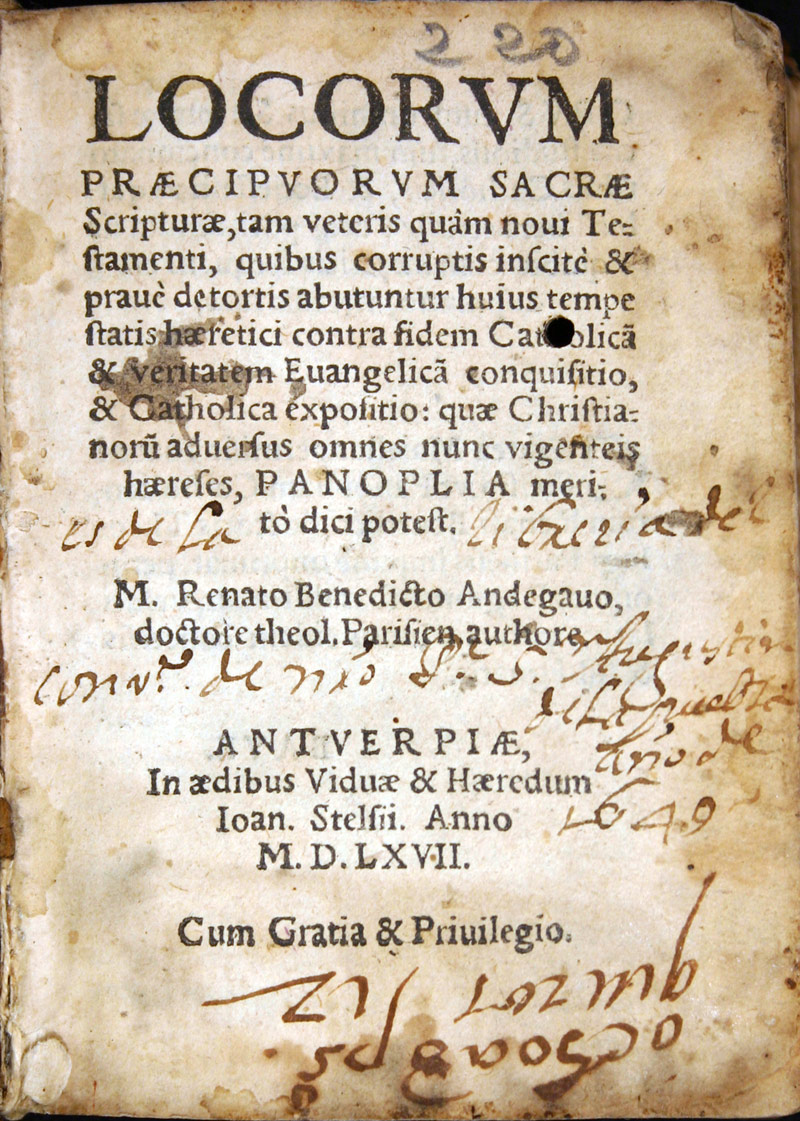 220
LOCORVM
PRÆCIPVORVM SACRÆ
Scripturæ, tam veteris quàm noui Te-
stamenti, quibus corruptis inscitè &
prauè detortis abutuntur huius tempe
statis hæretici contra fidem Catholicã
& veritatem Euangelicã conquisitio,
& Catholica expositio: quæ Christia-
norũ aduersus omnes nunc vigenteis
hæreses, PANOPLIA meri-
tò dici potest.
es de la libreria del
M. Renato Benedicto Andegauo,
doctore theol. Parisien. authore.
conv.to de nro P.e S. Augustin
de la puebla
año de
1649
ANTVERPIÆ,
In ædibus Viduæ & Hæredum
Ioan. Stelsii. Anno
M. D. LXVII.
Cum Gratia & Priuilegio.